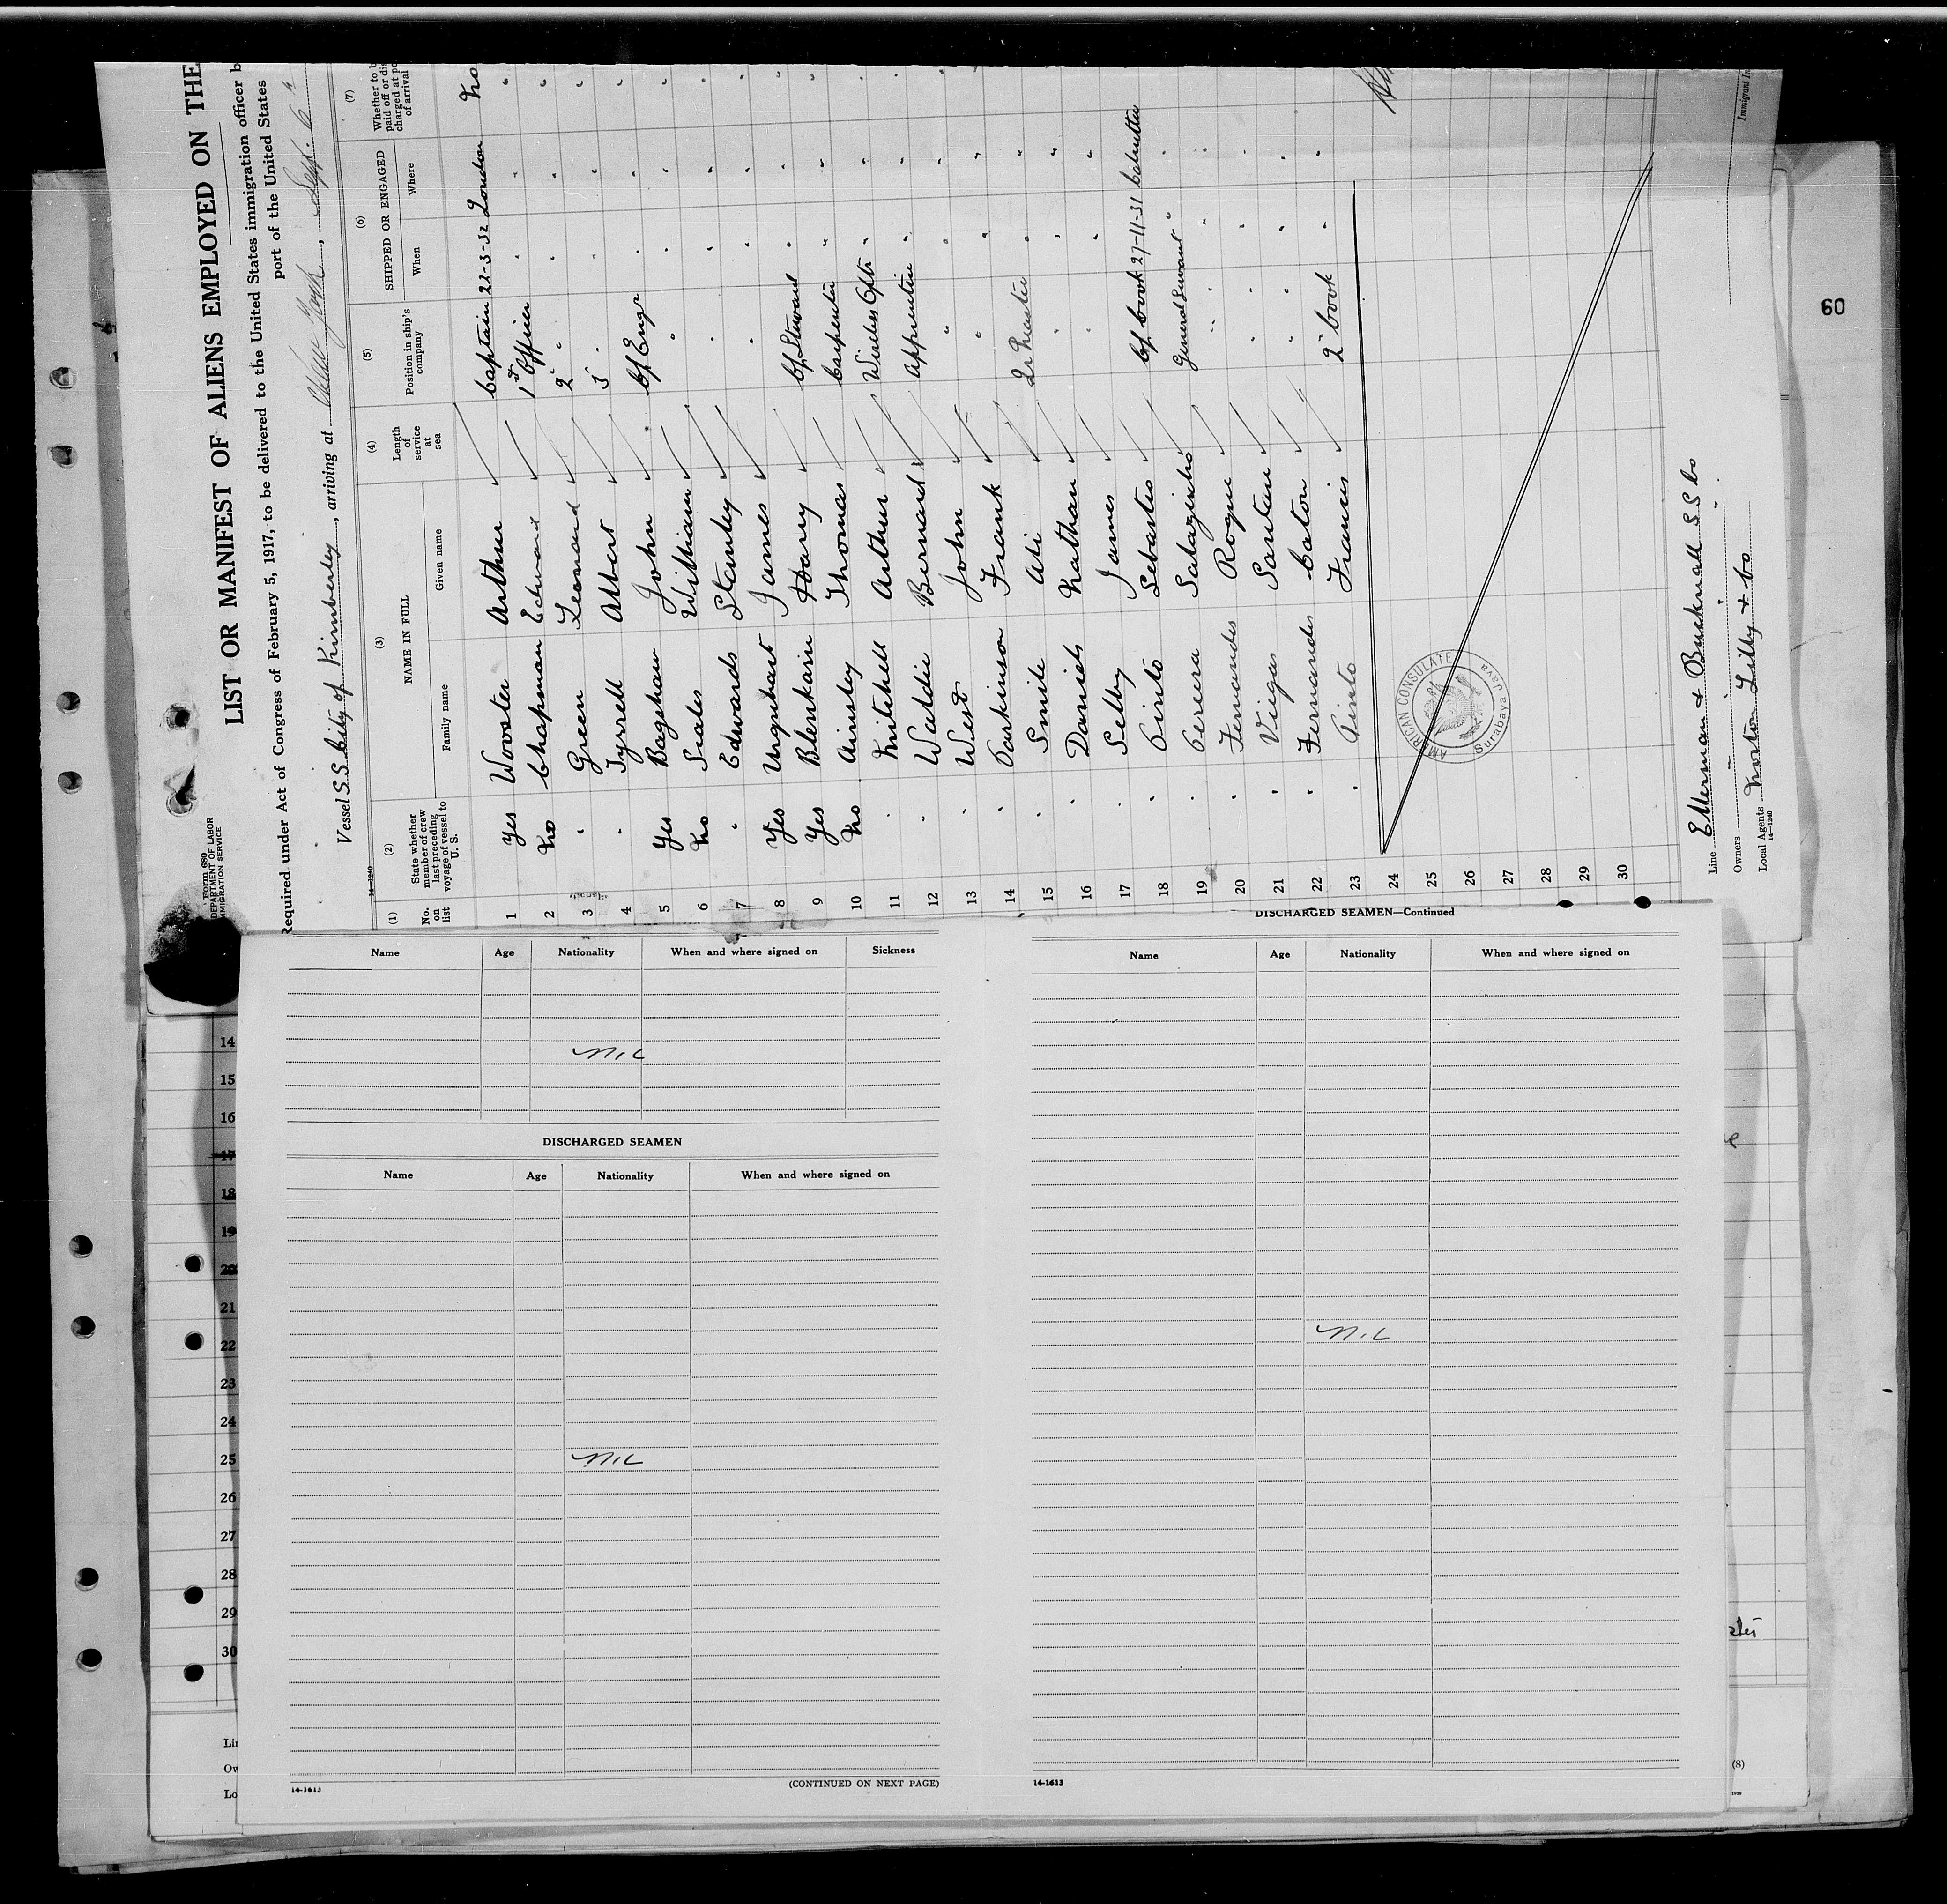 Form 680
DEPARTMENT OF LABOR
IMMIGRATION SERVICE
LIST OR MANIFEST OF ALIENS EMPLOYED ON THE
Required under Act of Congress of February 5, 1917, to be delivered to the United States immigration officer b
port of the United States
Vessel S.S. City of Kimberley, arriving at New York, Sept. 6
14-1240
(1) (2) (3) (4) (5) (6) (7)
No. on list
State whether member of crew last preceding voyage of vessel to U. S.
NAME IN FULL
Family name Given name
Length of service at sea
Position in ship's company
SHIPPED OR ENGAGED
When Where
Whether to b
paid off or dis
charged at po
of arrival
1 Yes Wooster Arthur Captain 22-3-32 London No
2 No Chapman Edward 1st Officer " " "
3 " Green Leonard 2 " " " "
4 " Tyrrell Albert 3 " " " "
5 Yes Bagshaw John Cf. Engr " " "
6 No Scales William " " " "
7 " Edwards Stanley " " " "
8 Yes Urquhart James " " " "
9 Yes Blenkarin Harry Cf. Steward " " "
10 No Ainsley Thomas Carpenter " " "
11 " Mitchell Arthur Wireless Optr " " "
12 " Waddie Bernard Apprentice " " "
13 " West John " " "
14 " Parkinson Frank " " "
15 " Smile Ali Qr Master " "
16 " Daniels Nathan " " "
17 Selby James " "
18 " Pinto Sebastio Cf. Cook 27-11-31 Calcutta
19 " Pereira Salazinho General Servant " "
20 " Fernandes Roque " " "
21 " Viegas Santan " " "
22 " Fernandes Caton " " "
23 " Pinto Francis 2 Cook " "
24
25
26
27
28
29
30
AMERICAN CONSULATE
Surabaya Java
Line Ellerman & Bucknall S S Co
Owners "
Local Agents Norton Lilly & Co
14-1240
Immigrant In
60
Name Age Nationality When and where signed on Sickness
NIL
DISCHARGED SEAMEN
Name Age Nationality When and where signed on
NIL
14-1613
(CONTINUED ON NEXT PAGE)
DISCHARGED SEAMEN—Continued
Name Age Nationality When and where signed on
NIL
14-1613
14
15
16
17
18
19
20
21
22
23
24
25
26
27
28
29
30
Lin
Ow
Lo
(8)